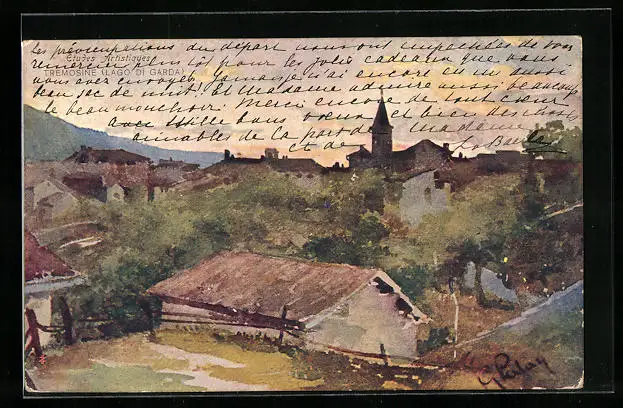 Les préoccupations du départ nous ont empêchées de vous
remercier plus tôt pour les jolis cadeaux que vous
Etudes Artistiques
TREMOSINE (LAGO DI GARDA)
vous avez envoyés. Jamais je n'ai encore eu un aussi
beau sac de nuit. Et Madame admire aussi beaucoup
le beau mouchoir. Merci encore de tout cœur,
avec mille bons vœux et bien des choses
aimables de la part de madame
et de